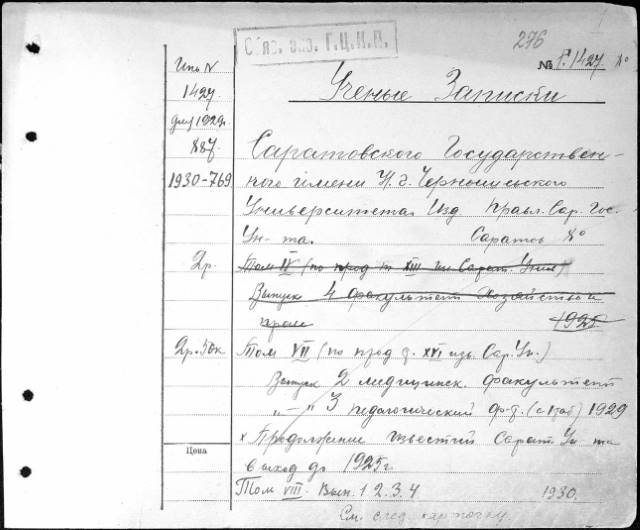 Обяз. экз. Г.Ц.К.П.
276
№ Г. 1427 8°
Инв N
1427
1929г.
887.
1930-769
Ученые Записки
Саратовского Государствен-
ного имени Н. Г. Чернышевского
Университета Изд. Правл. Сар. Гос.
Ун-та. Саратов 8°
2р. Том IV (по прод т XIII Сарат. Унив)
Выпуск 4 факультет Хозяйства и
права 1925
2р. 50к Том VII (по прод т. XVI изв. Сар. Ун.)
Выпуск 2 медицинск. факультет
"—" 3 педагогический ф-т. (с 1 таб) 1929
х Продолжение известий Сарат Ун-та
выход до 1925г
Цена
Том VIII. Вып. 1 2. 3. 4 1930.
См. след. карточку